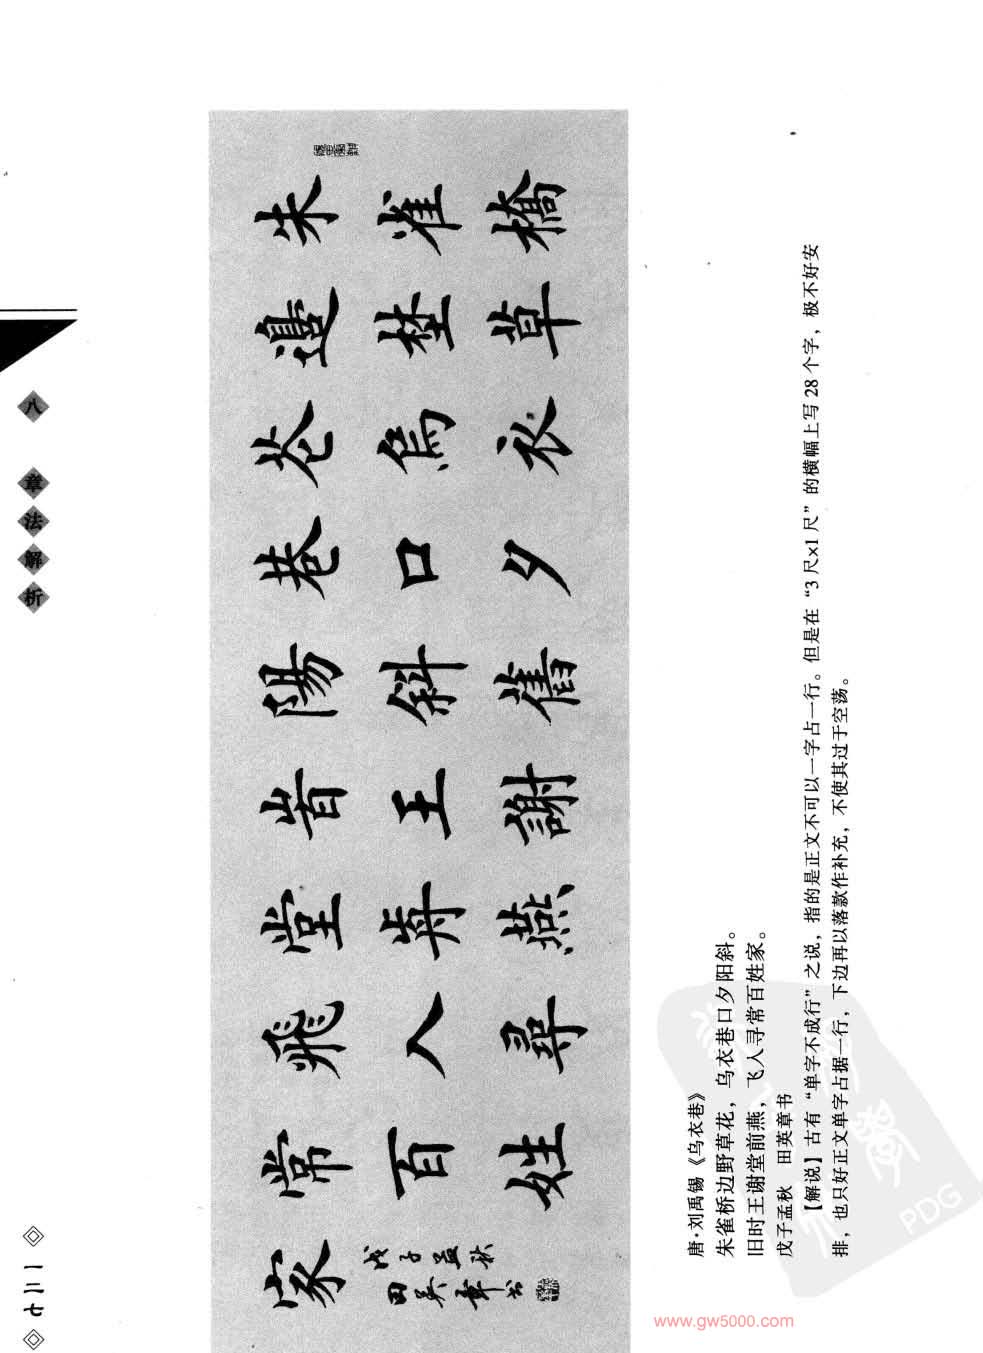 八 章法解析
朱雀橋
邊埜草
花烏衣
巷口夕
陽斜舊
峕王謝
堂歬燕
飛入尋
常百姓
家
戊子孟秋
田英章书
唐·刘禹锡《乌衣巷》
朱雀桥边野草花，乌衣巷口夕阳斜。
旧时王谢堂前燕，飞入寻常百姓家。
戊子孟秋　田英章书
【解说】古有“单字不成行”之说，指的是正文不可以一字占一行。但是在“3尺×1尺”的横幅上写28个字，极不好安
排，也只好正文单字占据一行，下边再以落款作补充，不使其过于空荡。
一二七
PDG
www.gw5000.com